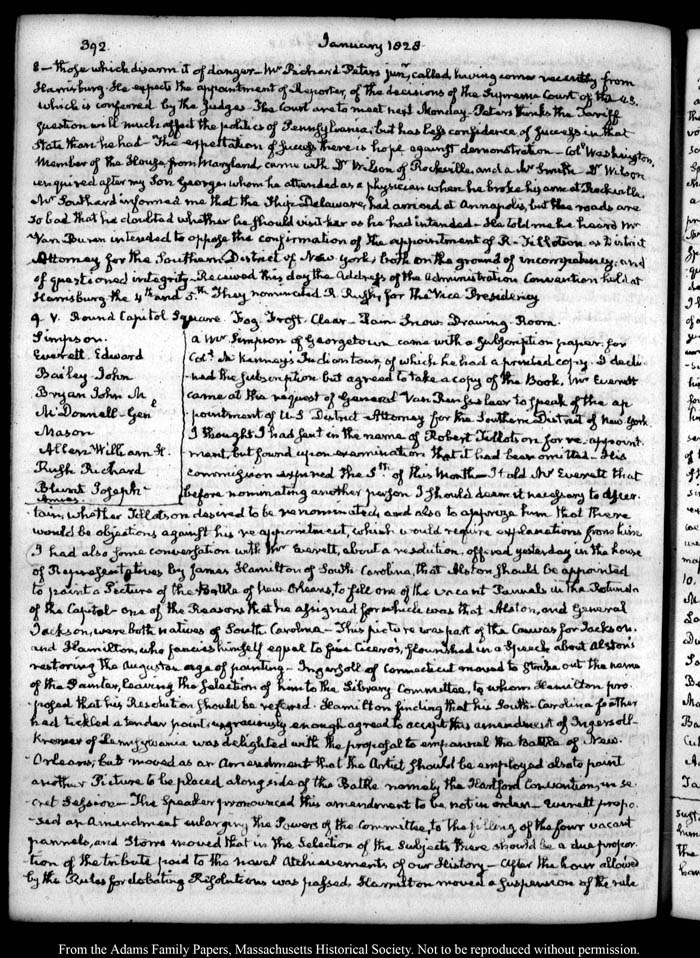 392. January 1828
8 — those which disarm it of danger — Mr Richard Peters junr, called, having come recently from
Harrisburg. He expects the appointment of Reporter, of the decisions of the Supreme Court of the U.S.
which is conferred by the Judges — The Court are to meet next Monday. Peters thinks the Tariff
question will much affect the politics of Pennsylvania; but has less confidence of success in that
State than he had — The expectation of success there is hope against demonstration — Coll. Washington,
Member of the House, from Maryland, came with Dr Wilson of Rockville, and a Mr Smith. Dr Wilson
enquired after my Son George, whom he attended as a physician when he broke his arm at Rockville.
Mr Southard informed me that the Ship Delaware, had arrived at Annapolis, but the roads are
so bad that he doubted whether he should visit her as he had intended — He told me he heard Mr
Van Buren intended to oppose the confirmation of the appointment of R. Tillotson as District
Attorney for the Southern District of New York, both on the ground of incompetency, and
of questioned integrity — Received this day the Address of the Administration Convention held at
Harrisburg the 4th and 5th They nominated R. Rush, for the Vice Presidency
9. V. Round Capitol Square. Fog. Frost. Clear — Rain Snow. Drawing-Room.
Simpson.
Everett. Edward
Bailey. John
Bryan John M
McDonnell. Gen
Mason
Allen William H.
Rush Richard
Blunt Joseph
a Mr Simpson of Georgetown came with a subscription paper, for
Coll. McKenney's Indian tour, of which he had a printed copy. I decli-
ned the subscription but agreed to take a copy of the Book. Mr Everett
came at the request of General Van Rensselaer to speak of the ap
pointment of U.S District Attorney for the Southern District of New York
I thought I had sent in the name of Robert Tillotson for re-appoint.
ment, but found upon examination that it had been omitted — His
commission expired the 5th of this Month — I told Mr Everett that
before nominating another person I should deem it necessary to ascer.
tain, whether Tillotson desired to be renominated, and also to apprize him that there
would be objections against his re appointment, which would require explanations from him
I had also some conversation with Mr Everett, about a resolution, offered yesterday in the house
of Representatives by James Hamilton of South Carolina, that Alston should be appointed
to paint a Picture of the Battle of New Orleans, to fill one of the vacant Pannels in the Rotunda
of the Capitol — one of the Reasons that he assigned for which was that Alston, and General
Jackson, were both natives of South Carolina — This picture was part of the Canvas for Jackson.
and Hamilton, who fancies himself equal to five Ciceros, flourished in a Speech about Alston's
restoring the Augustan age of painting — Ingersoll of Connecticut moved to strike out the name
of the Painter, leaving the selection of him to the Library Committee, to whom Hamilton pro-
-posed that his Resolution should be referred. Hamilton finding that his South-Carolina feather
had tickled a tender point, ungraciously enough agreed to accept this amendment of Ingersoll.
Kremer of Pennsylvania was delighted with the proposal to empannel the Battle of New.
-Orleans; but moved as an Amendment that the Artist should be employed also to paint
another Picture to be placed along side of the Battle namely the Hartford Convention, in se.
cret Session — The Speaker pronounced this amendment to be not in order — Everett propo.
-sed an Amendment enlarging the Powers of the Committee, to the filling of the four vacant
pannels, and Storrs moved that in the Selection of the Subjects there should be a due propor.
-tion of the tribute paid to the naval Atchievements of our History — After the hour allowed
by the Rules for debating Resolutions was passed, Hamilton moved a suspension of the rule
From the Adams Family Papers, Massachusetts Historical Society. Not to be reproduced without permission.